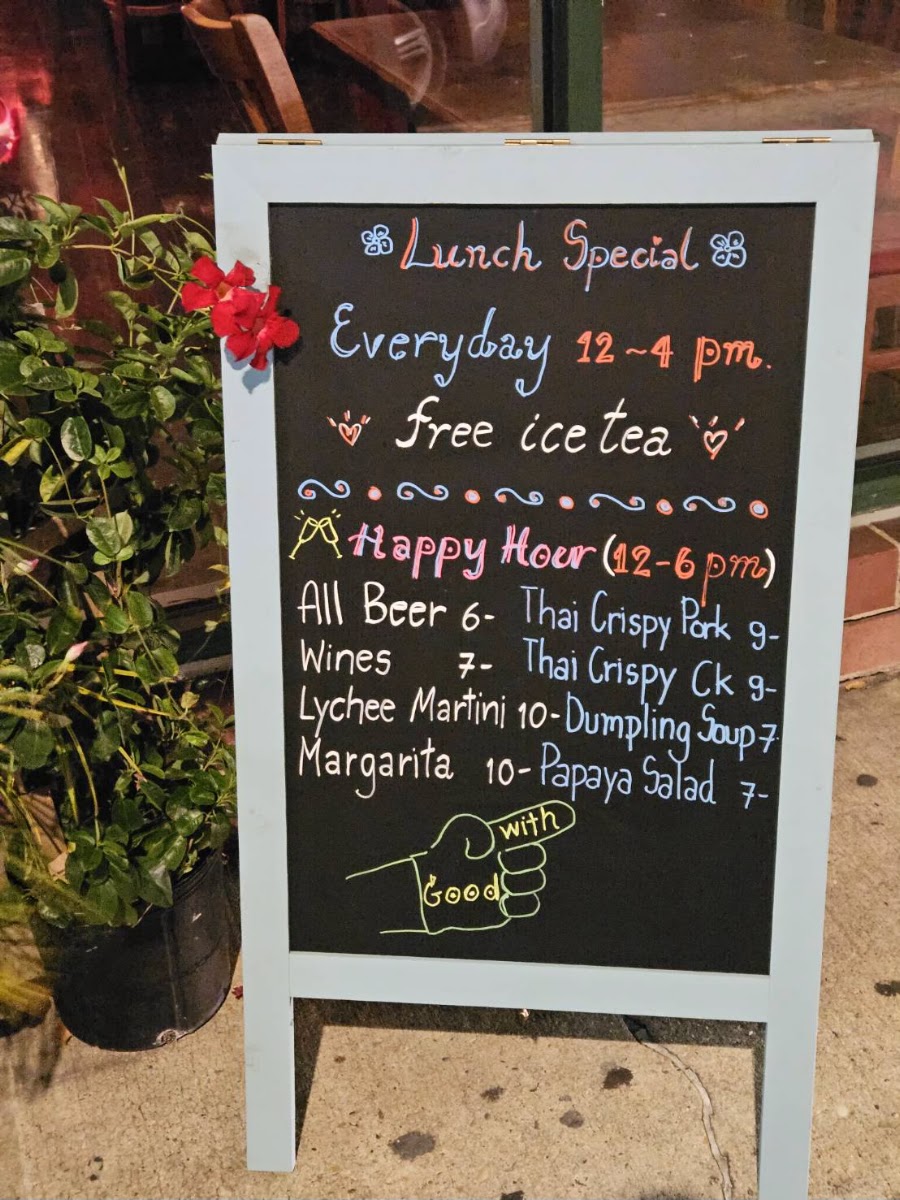 Lunch Special
Everyday 12~4 pm.
free ice tea
Happy Hour (12-6 pm)
All Beer 6- Thai Crispy Pork 9-
Wines 7- Thai Crispy Ck 9-
Lychee Martini 10- Dumpling Soup 7-
Margarita 10- Papaya Salad 7-
with
Good